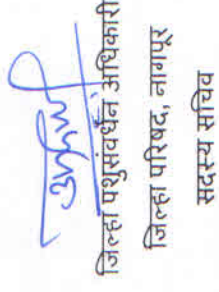 जिल्हा पशुसंवर्धन अधिकारी
जिल्हा परिषद, नागपूर
सदस्य सचिव